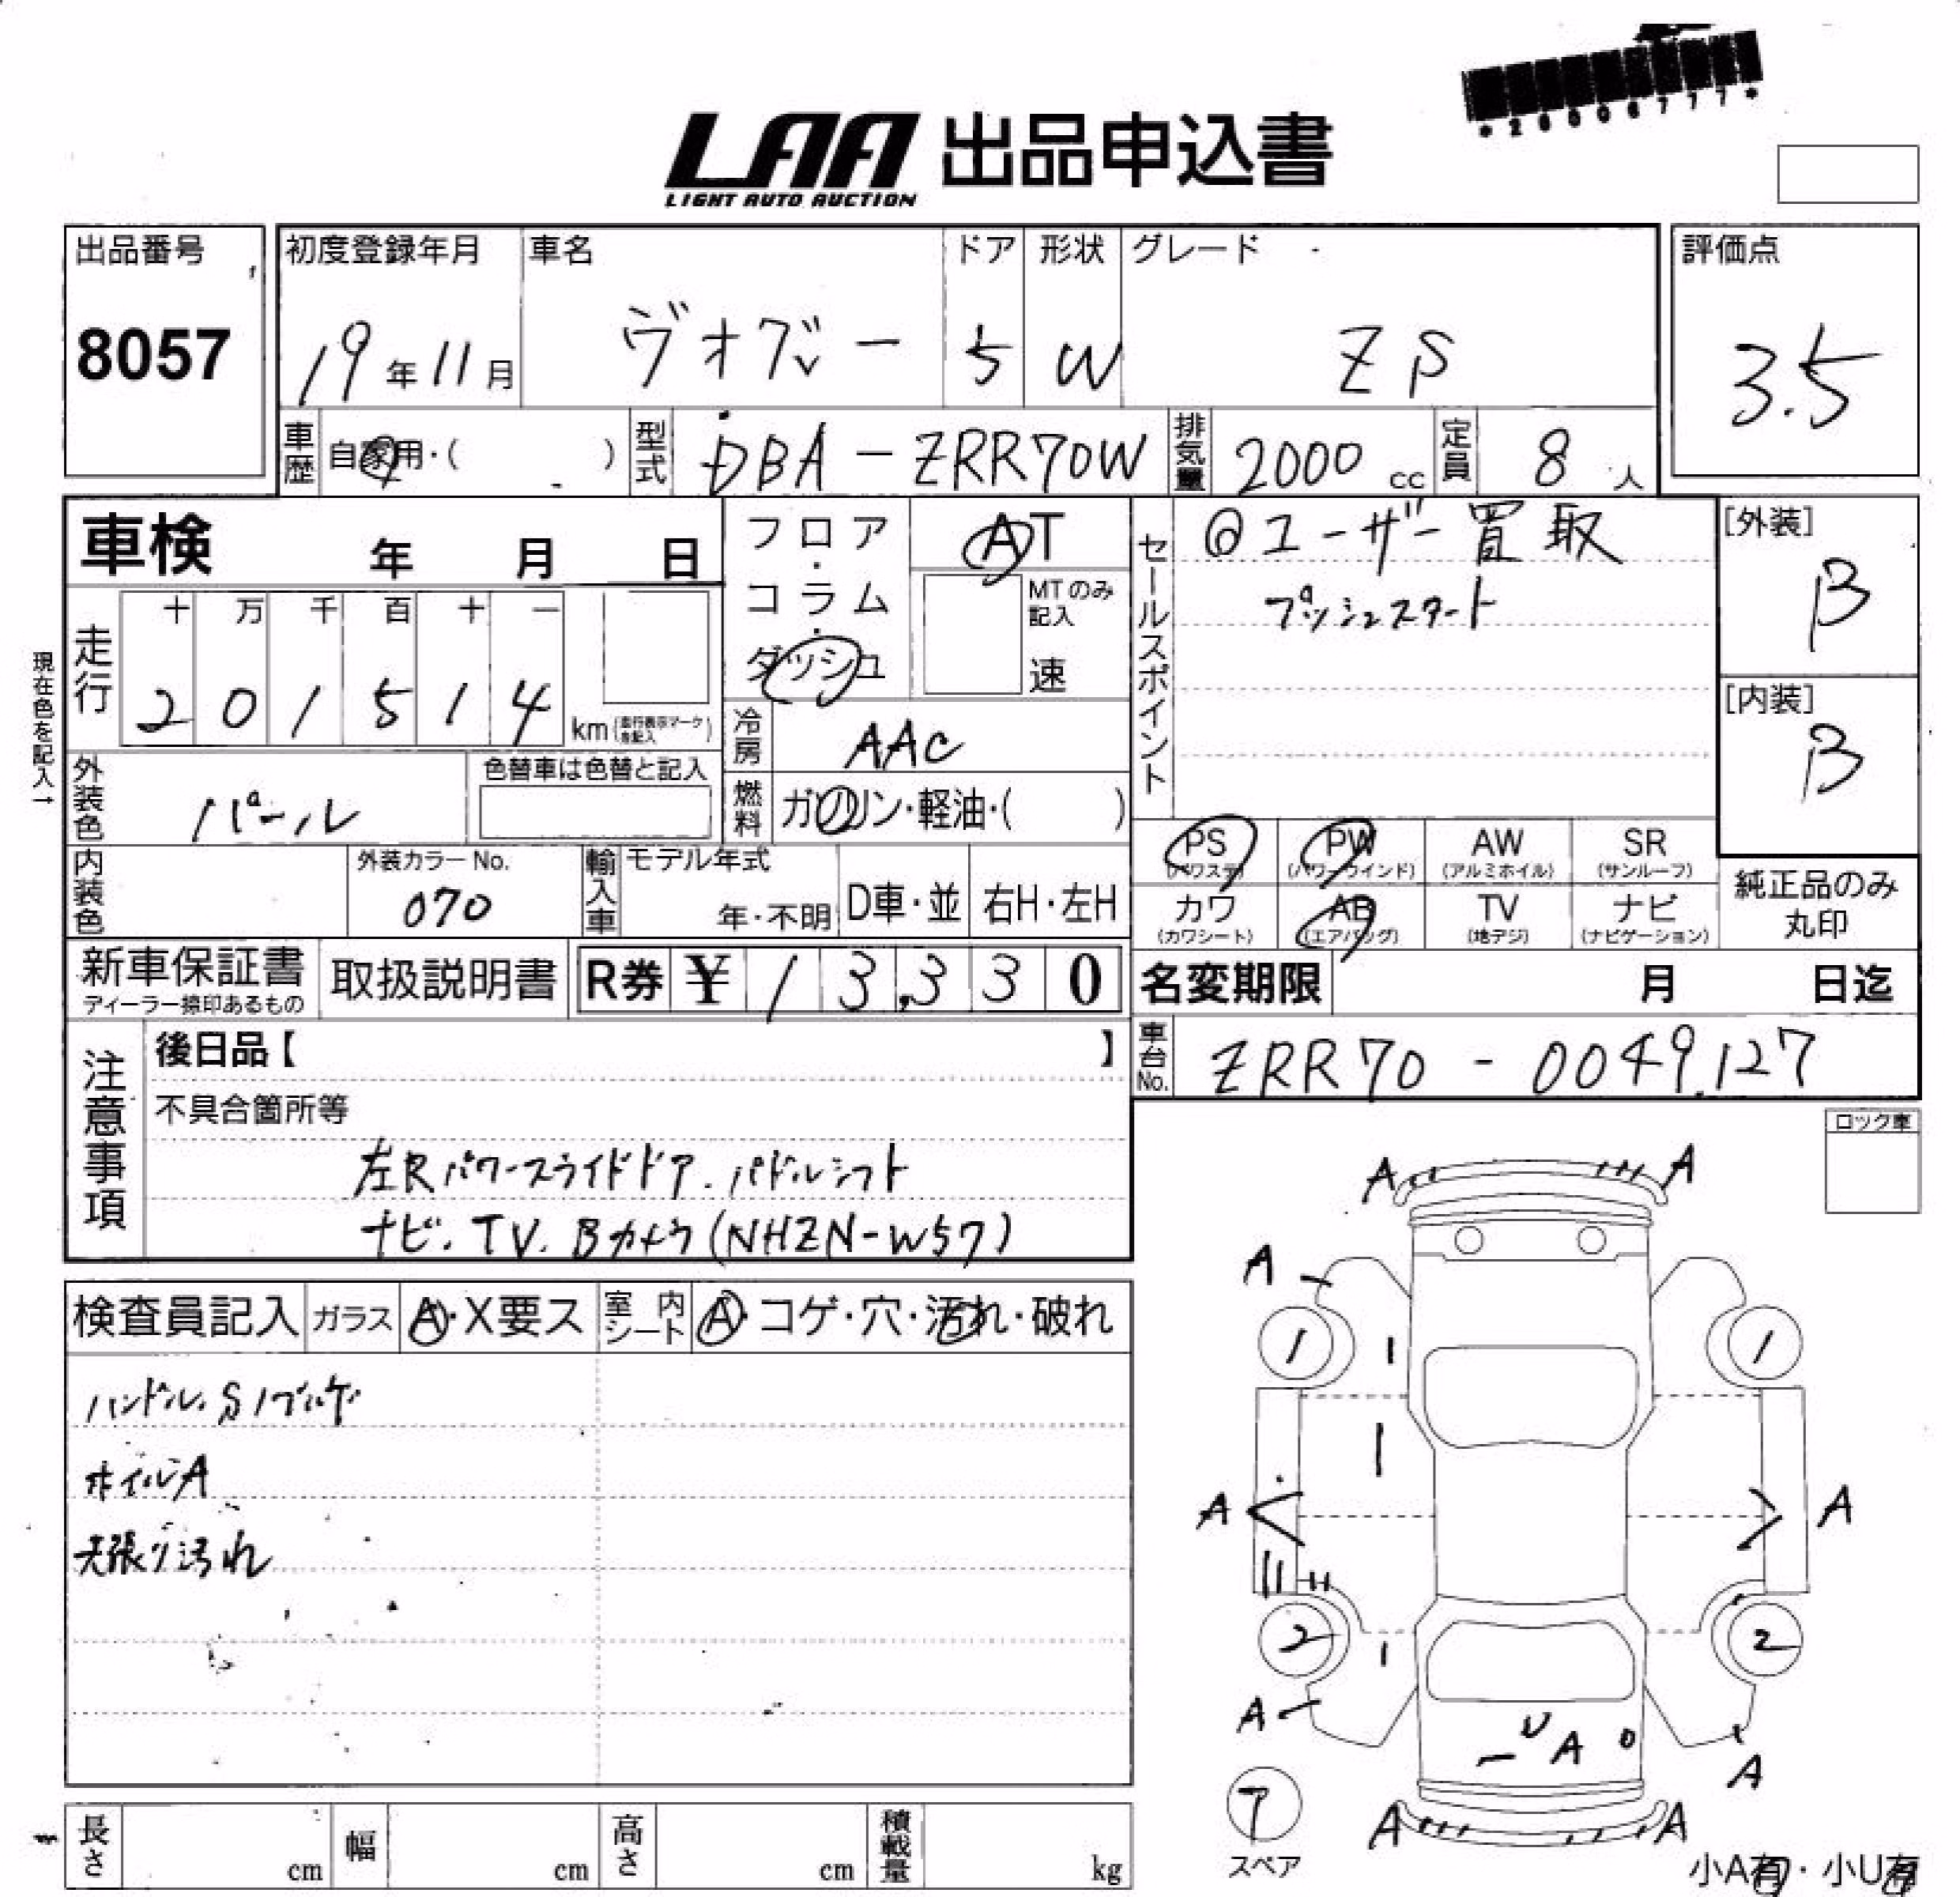 *26006777*
LAA 出品申込書
LIGHT AUTO AUCTION
出品番号 初度登録年月 車名 ドア 形状 グレード 評価点
8057 19年11月 ヴォグシー 5 W ZS 3.5
車歴 自家用・( ) 型式 DBA-ZRR70W 排気量 2000cc 定員 8人
車検 年 月 日
フロア・コラム・ダッシュ
AT
MTのみ記入
速
セールスポイント
◎ユーザー買取
プッシュスタート
[外装]
B
[内装]
B
現在色を記入→
走行 十 万 千 百 十 一
2 0 1 5 1 4 km(走行表示マーク を記入)
冷房 AAC
外装色 パール
色替車は色替と記入
燃料 ガソリン・軽油・( )
内装色
外装カラーNo.
070
輸入車 モデル年式
年・不明 D車・並 右H・左H
PS (パワステ) PW (パワーウインド) AW (アルミホイル) SR (サンルーフ)
カワ (カワシート) AB (エアバッグ) TV (地デジ) ナビ (ナビゲーション)
純正品のみ
丸印
新車保証書
ディーラー捺印あるもの
取扱説明書 R券 ¥ 13,330
名変期限 月 日迄
車台No. ZRR70-0049127
注意事項
後日品【 】
不具合箇所等
左Rパワースライドドア.パドルシフト
ナビ.TV.Bカメラ(NHZN-W57)
ロック車
検査員記入 ガラス A・X要ス 室内シート A・コゲ・穴・汚れ・破れ
ハンドル.S
ホイルA
天張り汚れ
A A
A
1 1
A A
2 2
A
U A
A
ア
スペア
A A
小A有・小U有
長さ cm 幅 cm 高さ cm 積載量 kg